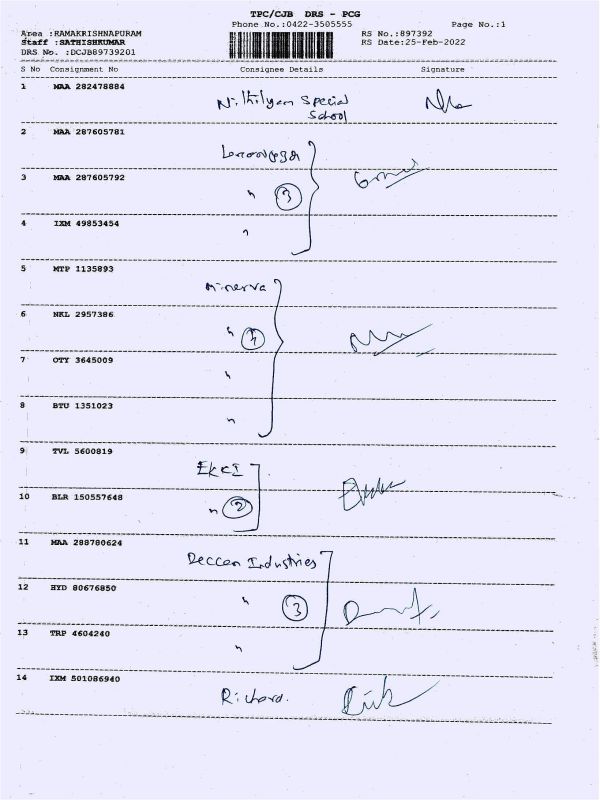 TPC/CJB DRS - PCG
Phone No.:0422-3505555 Page No.:1
Area :RAMAKRISHNAPURAM RS No.:897392
Staff :SATHISHKUMAR RS Date:25-Feb-2022
DRS No. :DCJB89739201
S No Consignment No Consignee Details Signature
1 MAA 282478884 Nithilyam Special
School
2 MAA 287605781
3 MAA 287605792 " 3
4 IXM 49853454 "
5 MTP 1135893 Minerva
6 NKL 2957386 "
7 OTY 3645009 "
8 BTU 1351023 "
9 TVL 5600819 EKKI
10 BLR 150557648 " 2
11 MAA 288780624 Deccan Industries
12 HYD 80676850 " 3
13 TRP 4604240 "
14 IXM 501086940 Richard.